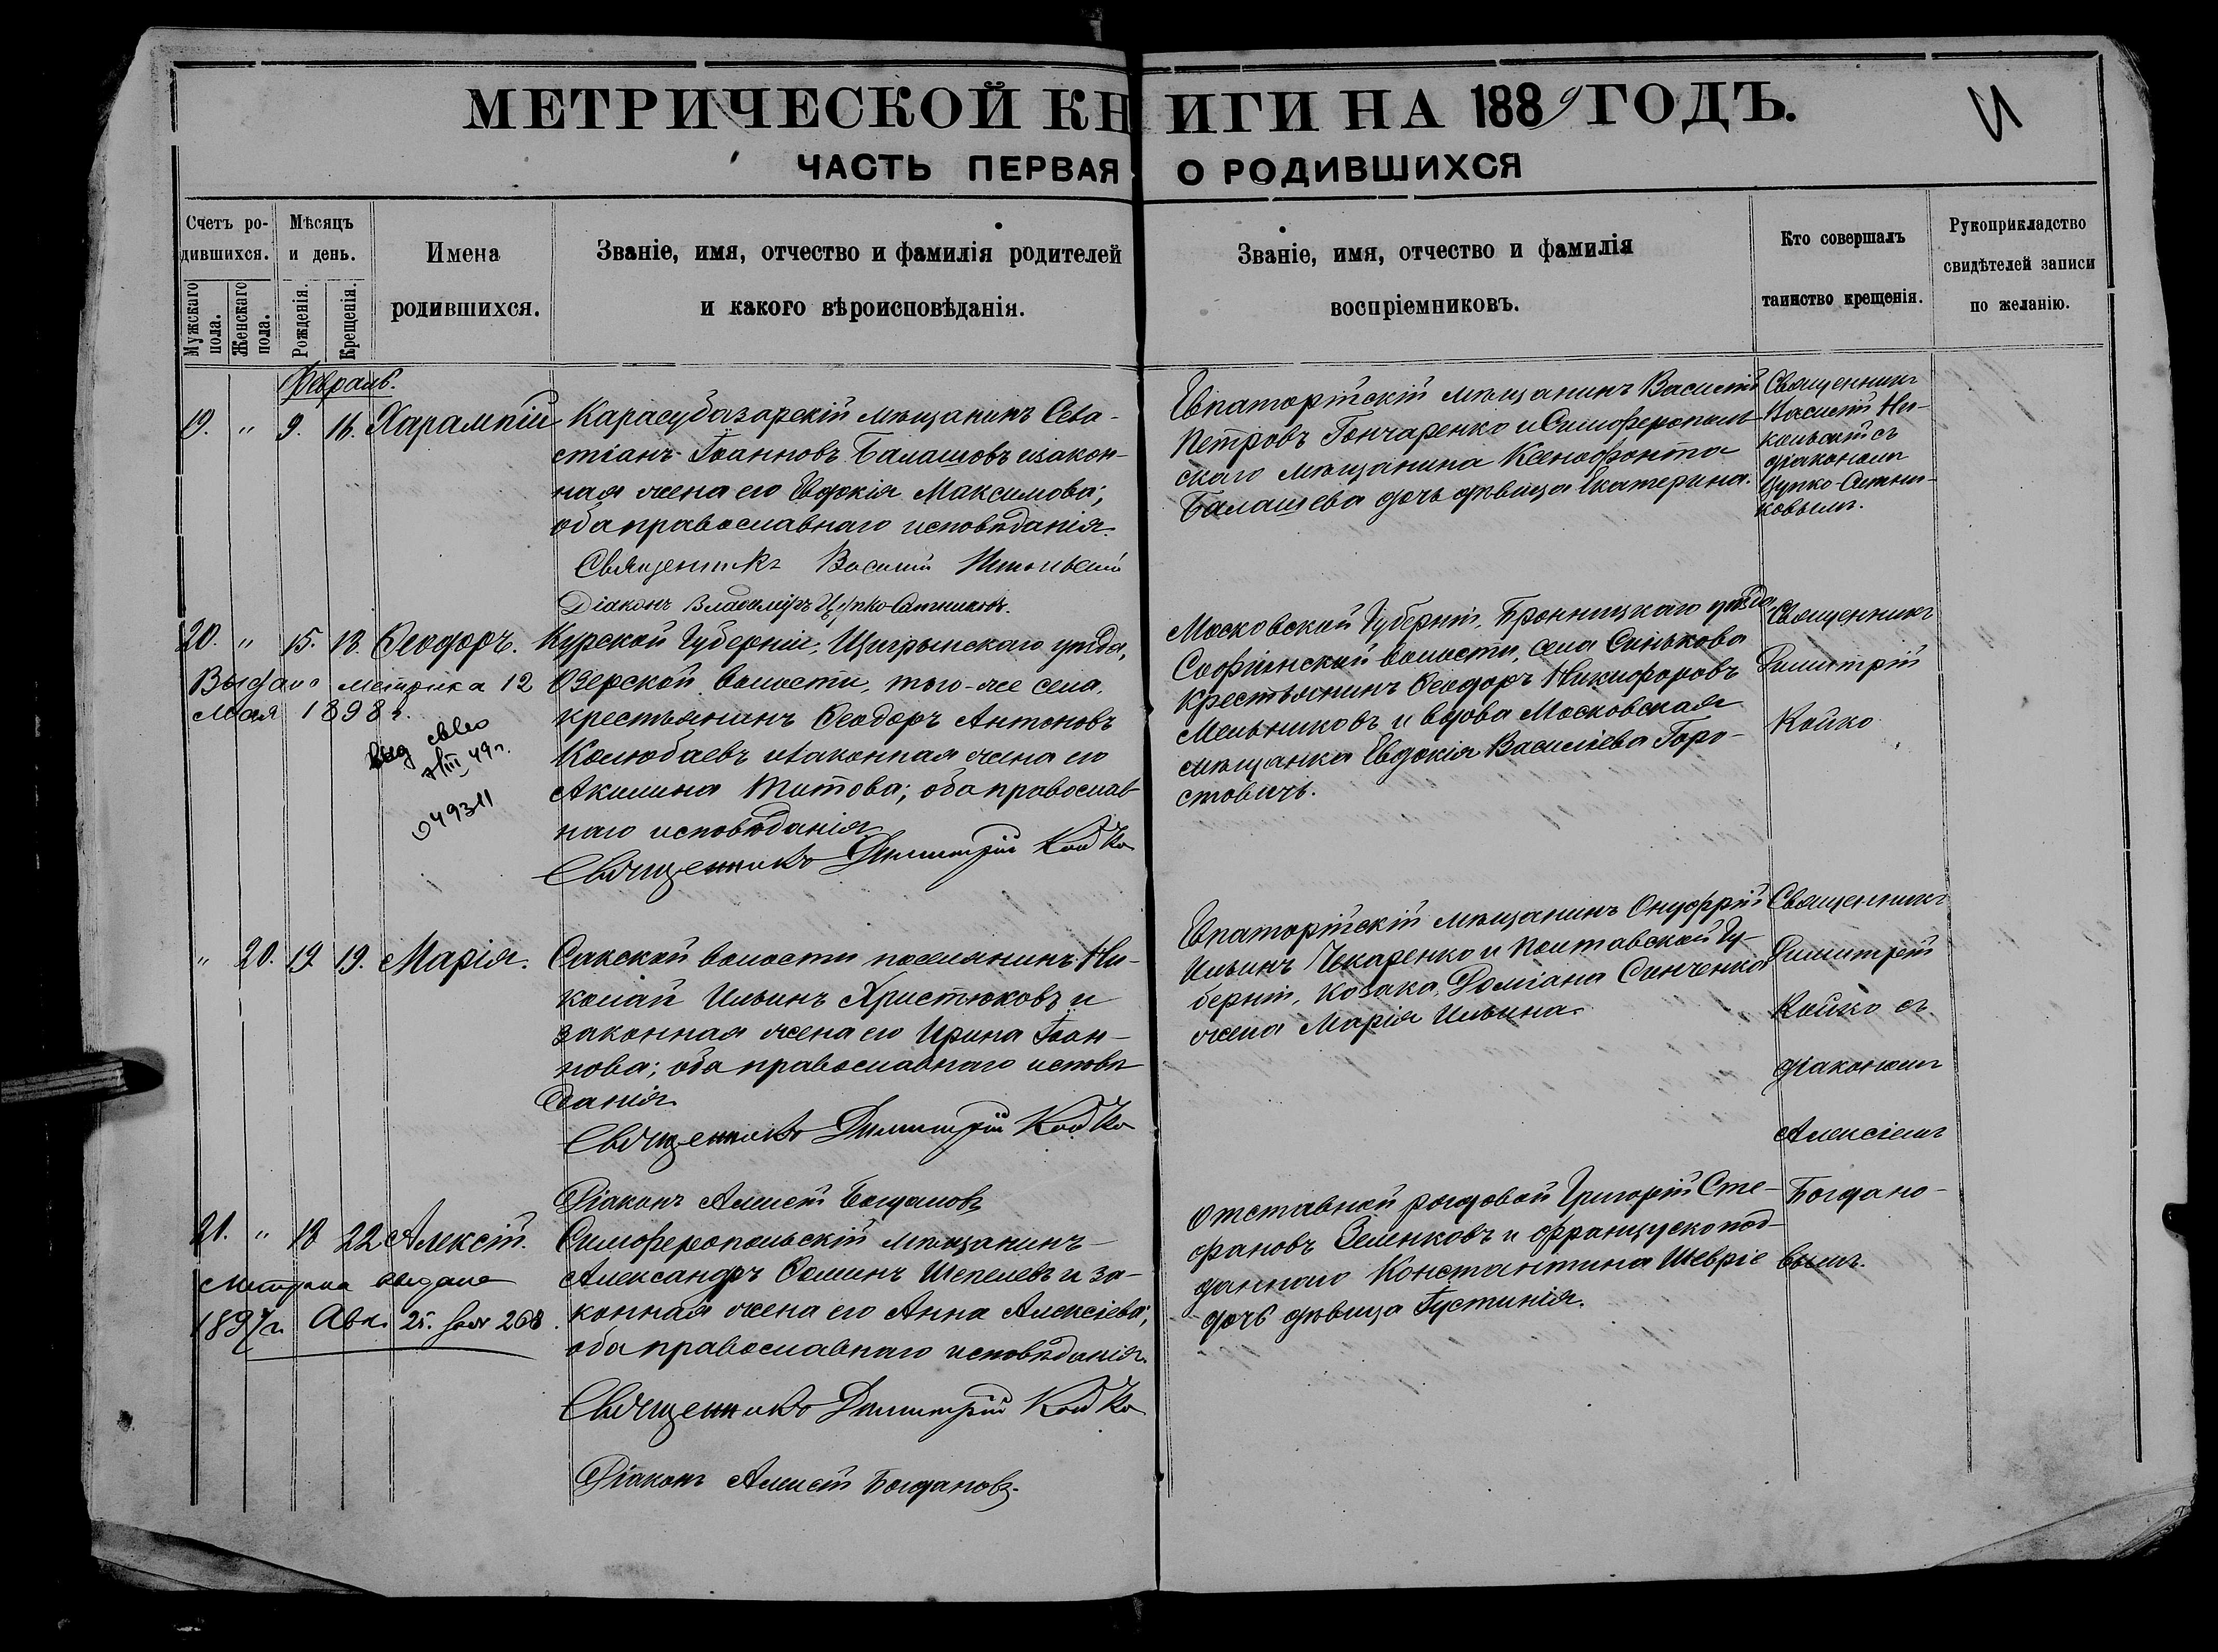 МЕТРИЧЕСКОЙ КНИГИ НА 1889 ГОДЪ.
ЧАСТЬ ПЕРВАЯ О РОДИВШИХСЯ
Счетъ ро-
дившихся.
Мужскаго пола.
Женскаго пола.
Мѣсяцъ
и день.
Рожденія.
Крещенія.
Имена
родившихся.
Званіе, имя, отчество и фамилія родителей
и какого вѣроисповѣданія.
Званіе, имя, отчество и фамилія
воспріемниковъ.
Кто совершалъ
таинство крещенія.
Рукоприкладство
свидѣтелей записи
по желанію.
Февраль.
19. " 9. 16. Харалмпій
Карасубазарскій мѣщанинъ Сева-
стіанъ Іоанновъ Балашовъ и закон-
ная жена его Евдокія Максимова;
оба православнаго исповѣданія.
Священникъ Василій
Діаконъ Владиміръ Цупко-Ситников.
Евпаторійскій мѣщанинъ Василій
Петровъ Гончаренко и Симферополь-
скаго мѣщанина Ксенофонта
Балашева дочь дѣвица Екатерина.
Священникъ
Василій Ни-
кольскій съ
діакономъ
Цупко-Ситни-
ковымъ.
20. " 15. 18. Ѳеодоръ.
Выдана метрика 12
Мая 1898 г.
выд свво
7/III 49 г.
049311
Курской Губерніи, Щигрынскаго уѣзда,
Озерской волости, того-же села,
крестьянинъ Ѳеодоръ Антоновъ
Колюбаевъ и законная жена его
Акилина Титова; оба православ-
наго исповѣданія
Священникъ Димитрій Койко
Московской Губерніи, Бронницкаго уѣзда
Софьинской волости, села Синькова
крестьянинъ Ѳеодоръ Никифоровъ
Мельниковъ и вдова Московская
мѣщанка Евдокія Василіева Горо-
стовичъ.
Священникъ
Димитрій
Койко
" 20. 19 19. Марія.
Сакской волости поселянинъ Ни-
колай Ильинъ Христюковъ и
законная жена его Ирина Іоан-
нова; оба православнаго исповѣ-
данія
Священникъ Димитрій Койко
Діаконъ Алексій Богдановъ
Евпаторійскій мѣщанинъ Онуфрій
Ильинъ Чекаренко и Полтавской Гу-
берніи, Козака, Доміана Синченко
жена Марія Ильина.
Священникъ
Димитрій
Койко съ
діакономъ
Алексіемъ
Богдано-
вымъ.
21. " 18 22 Алексій.
Метрика выдана
1897 г. Авг. 25. 268
Симферопольскій мѣщанинъ
Александръ Ѳоминъ Шепелевъ и за-
конная жена его Анна Алексіева;
оба православнаго исповѣданія.
Священникъ Димитрій Койко
Діаконъ Алексій Богдановъ.
Отставной рядовой Григорій Сте-
фановъ Зеленковъ и французскопод-
даннаго Константина Шевріе
дочь дѣвица Іустинія.